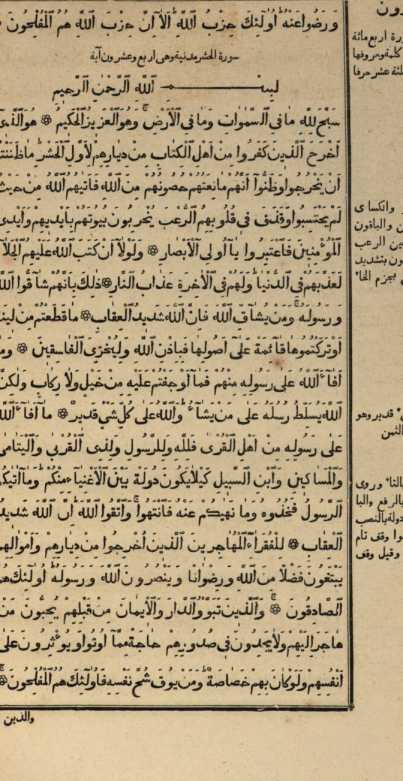 وَرَضُوا عَنْهُ أُولَٰئِكَ حِزْبُ اللَّهِ أَلَا إِنَّ حِزْبَ اللَّهِ هُمُ الْمُفْلِحُونَ
سورة الحشر مدنية وهي اربع وعشرون آية
بِسْمِ اللَّهِ الرَّحْمَٰنِ الرَّحِيمِ
سَبَّحَ لِلَّهِ مَا فِي السَّمٰوَاتِ وَمَا فِي الْأَرْضِ وَهُوَ الْعَزِيزُ الْحَكِيمُ ۞ هُوَ الَّذِي
أَخْرَجَ الَّذِينَ كَفَرُوا مِنْ أَهْلِ الْكِتَابِ مِنْ دِيَارِهِمْ لِأَوَّلِ الْحَشْرِ مَا ظَنَنْتُمْ
أَنْ يَخْرُجُوا وَظَنُّوا أَنَّهُمْ مَانِعَتُهُمْ حُصُونُهُمْ مِنَ اللَّهِ فَأَتٰيهُمُ اللَّهُ مِنْ حَيْثُ
لَمْ يَحْتَسِبُوا وَقَذَفَ فِي قُلُوبِهِمُ الرُّعْبَ يُخْرِبُونَ بُيُوتَهُمْ بِأَيْدِيهِمْ وَأَيْدِي
الْمُؤْمِنِينَ فَاعْتَبِرُوا يَا أُولِي الْأَبْصَارِ ۞ وَلَوْلَا أَنْ كَتَبَ اللَّهُ عَلَيْهِمُ الْجَلَا
لَعَذَّبَهُمْ فِي الدُّنْيَا وَلَهُمْ فِي الْآخِرَةِ عَذَابُ النَّارِ ۞ ذٰلِكَ بِأَنَّهُمْ شَاقُّوا اللَّهَ
وَرَسُولَهُ وَمَنْ يُشَاقِّ اللَّهَ فَإِنَّ اللَّهَ شَدِيدُ الْعِقَابِ ۞ مَا قَطَعْتُمْ مِنْ لِينَةٍ
أَوْ تَرَكْتُمُوهَا قَائِمَةً عَلَى أُصُولِهَا فَبِإِذْنِ اللَّهِ وَلِيُخْزِيَ الْفَاسِقِينَ ۞ وَمَا
أَفَاءَ اللَّهُ عَلَى رَسُولِهِ مِنْهُمْ فَمَا أَوْجَفْتُمْ عَلَيْهِ مِنْ خَيْلٍ وَلَا رِكَابٍ وَلٰكِنَّ
اللَّهَ يُسَلِّطُ رُسُلَهُ عَلَى مَنْ يَشَاءُ وَاللَّهُ عَلَى كُلِّ شَيْءٍ قَدِيرٌ ۞ مَا أَفَاءَ اللَّهُ
عَلَى رَسُولِهِ مِنْ أَهْلِ الْقُرَى فَلِلَّهِ وَلِلرَّسُولِ وَلِذِي الْقُرْبَى وَالْيَتَامَى
وَالْمَسَاكِينِ وَابْنِ السَّبِيلِ كَيْلَا يَكُونَ دُولَةً بَيْنَ الْأَغْنِيَاءِ مِنْكُمْ وَمَا آتٰيكُمُ
الرَّسُولُ فَخُذُوهُ وَمَا نَهٰيكُمْ عَنْهُ فَانْتَهُوا وَاتَّقُوا اللَّهَ إِنَّ اللَّهَ شَدِيدُ
الْعِقَابِ ۞ لِلْفُقَرَاءِ الْمُهَاجِرِينَ الَّذِينَ أُخْرِجُوا مِنْ دِيَارِهِمْ وَأَمْوَالِهِمْ
يَبْتَغُونَ فَضْلًا مِنَ اللَّهِ وَرِضْوَانًا وَيَنْصُرُونَ اللَّهَ وَرَسُولَهُ أُولٰئِكَ هُمُ
الصَّادِقُونَ ۞ وَالَّذِينَ تَبَوَّءُوا الدَّارَ وَالْإِيمَانَ مِنْ قَبْلِهِمْ يُحِبُّونَ مَنْ
هَاجَرَ إِلَيْهِمْ وَلَا يَجِدُونَ فِي صُدُورِهِمْ حَاجَةً مِمَّا أُوتُوا وَيُؤْثِرُونَ عَلَى
أَنْفُسِهِمْ وَلَوْ كَانَ بِهِمْ خَصَاصَةٌ وَمَنْ يُوقَ شُحَّ نَفْسِهِ فَأُولٰئِكَ هُمُ الْمُفْلِحُونَ ۞
والذين
رة اربع مائة
كلمة وحروفها
ثلثة عشر حرفا
والباقون
الرعب
بتشديد
بجزم الخا
قدير وهو
وروى
بالرفع
دولة بالنصب
وقف تام
وقيل وقف